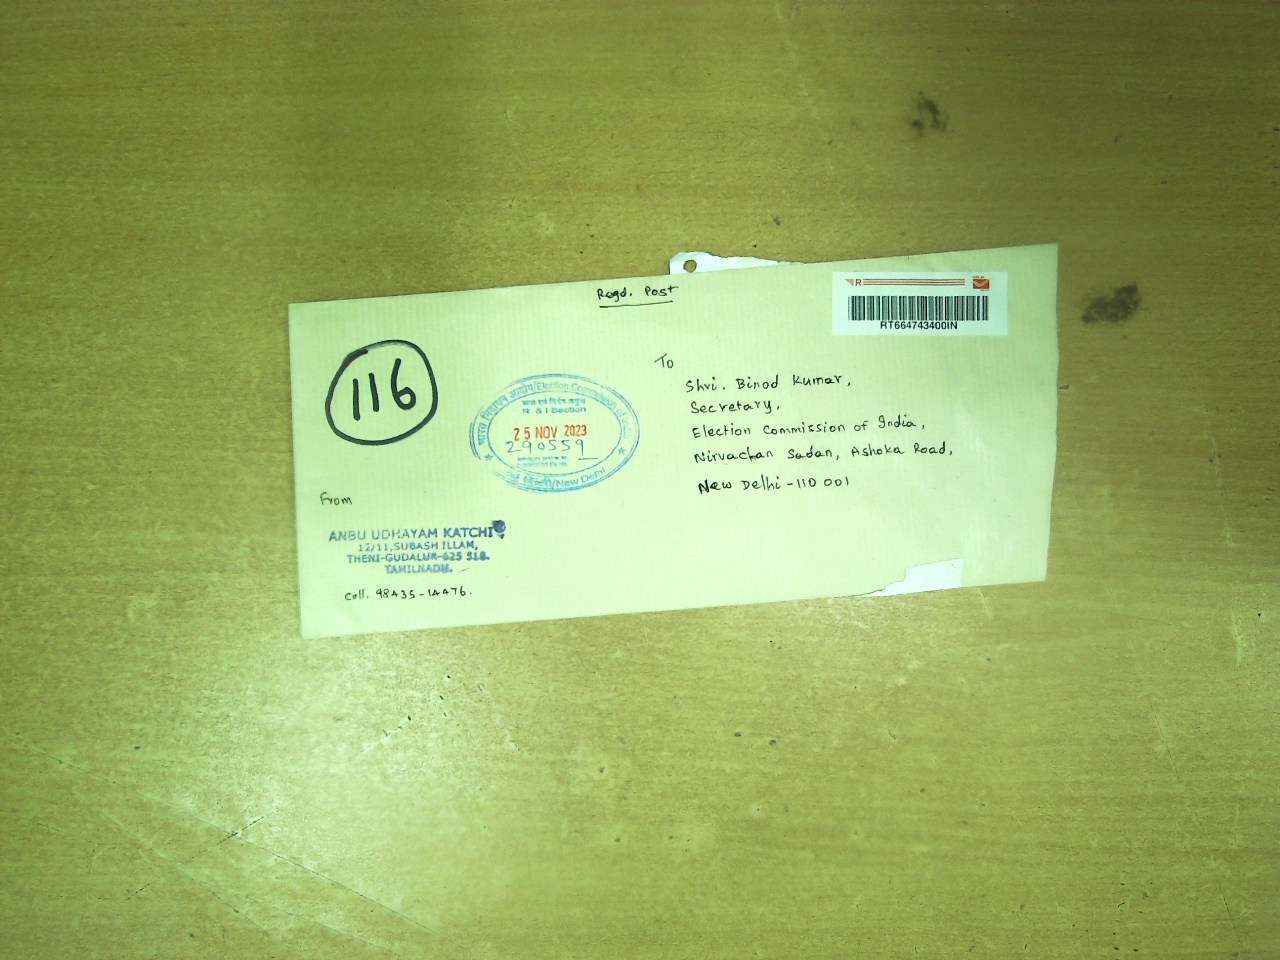 Regd. Post
R
RT664743400IN
116
भारत निर्वाचन आयोग/Election Commission of India
R & I Section
25 NOV 2023
290559
नई दिल्ली/New Delhi
To
Shri. Binod Kumar,
Secretary,
Election Commission of India,
Nirvachan Sadan, Ashoka Road,
New Delhi - 110 001
From
ANBU UDHAYAM KATCHI
12/11, SUBASH ILLAM,
THENI-GUDALUR-625 518.
TAMILNADU.
Cell. 98435-14476.